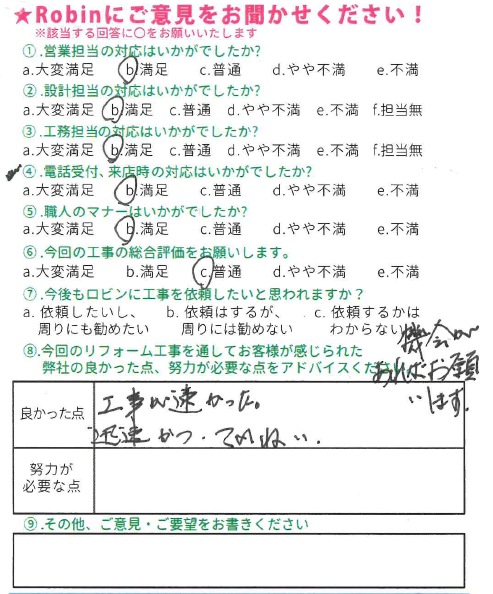 ★Robinにご意見をお聞かせください！
※該当する回答に〇をお願いいたします
①.営業担当の対応はいかがでしたか?
a.大変満足 b.満足 c.普通 d.やや不満 e.不満
②.設計担当の対応はいかがでしたか?
a.大変満足 b.満足 c.普通 d.やや不満 e.不満 f.担当無
③.工務担当の対応はいかがでしたか?
a.大変満足 b.満足 c.普通 d.やや不満 e.不満 f.担当無
④.電話受付、来店時の対応はいかがでしたか?
a.大変満足 b.満足 c.普通 d.やや不満 e.不満
⑤.職人のマナーはいかがでしたか?
a.大変満足 b.満足 c.普通 d.やや不満 e.不満
⑥.今回の工事の総合評価をお願いします。
a.大変満足 b.満足 c.普通 d.やや不満 e.不満
⑦.今後もロビンに工事を依頼したいと思われますか？
a. 依頼したいし、 b. 依頼はするが、 c. 依頼するかは
周りにも勧めたい 周りには勧めない わからない
機会が
あればお願
いします。
⑧.今回のリフォーム工事を通してお客様が感じられた
弊社の良かった点、努力が必要な点をアドバイスください
良かった点
工事が速かった。
迅速かつ・ていねい.
努力が
必要な点
⑨.その他、ご意見・ご要望をお書きください